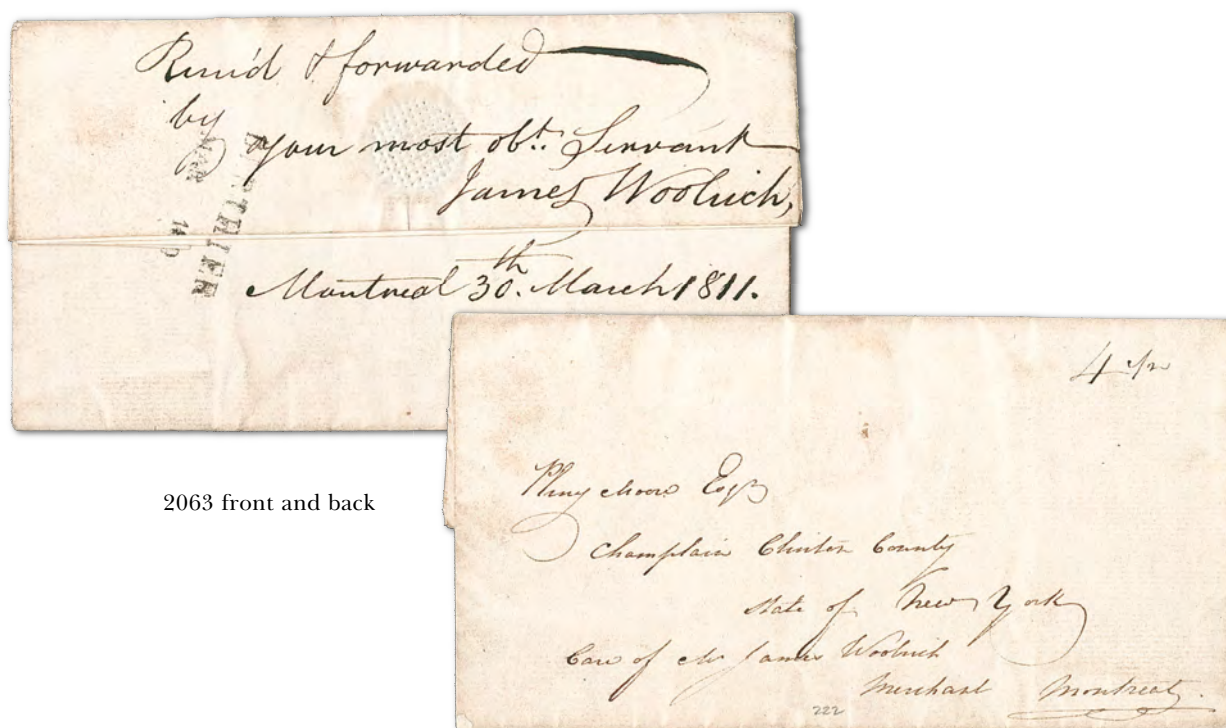 Recv'd & forwarded
by
your most obt. Servant
James Woolrich,
BERTHIER
MAR
Montreal 30th. March 1811.
4
2063 front and back
Pliny Moore Esqr
Champlain Clinton County
State of New York
Care of Mr James Woolrich
Merchant Montreal.
222